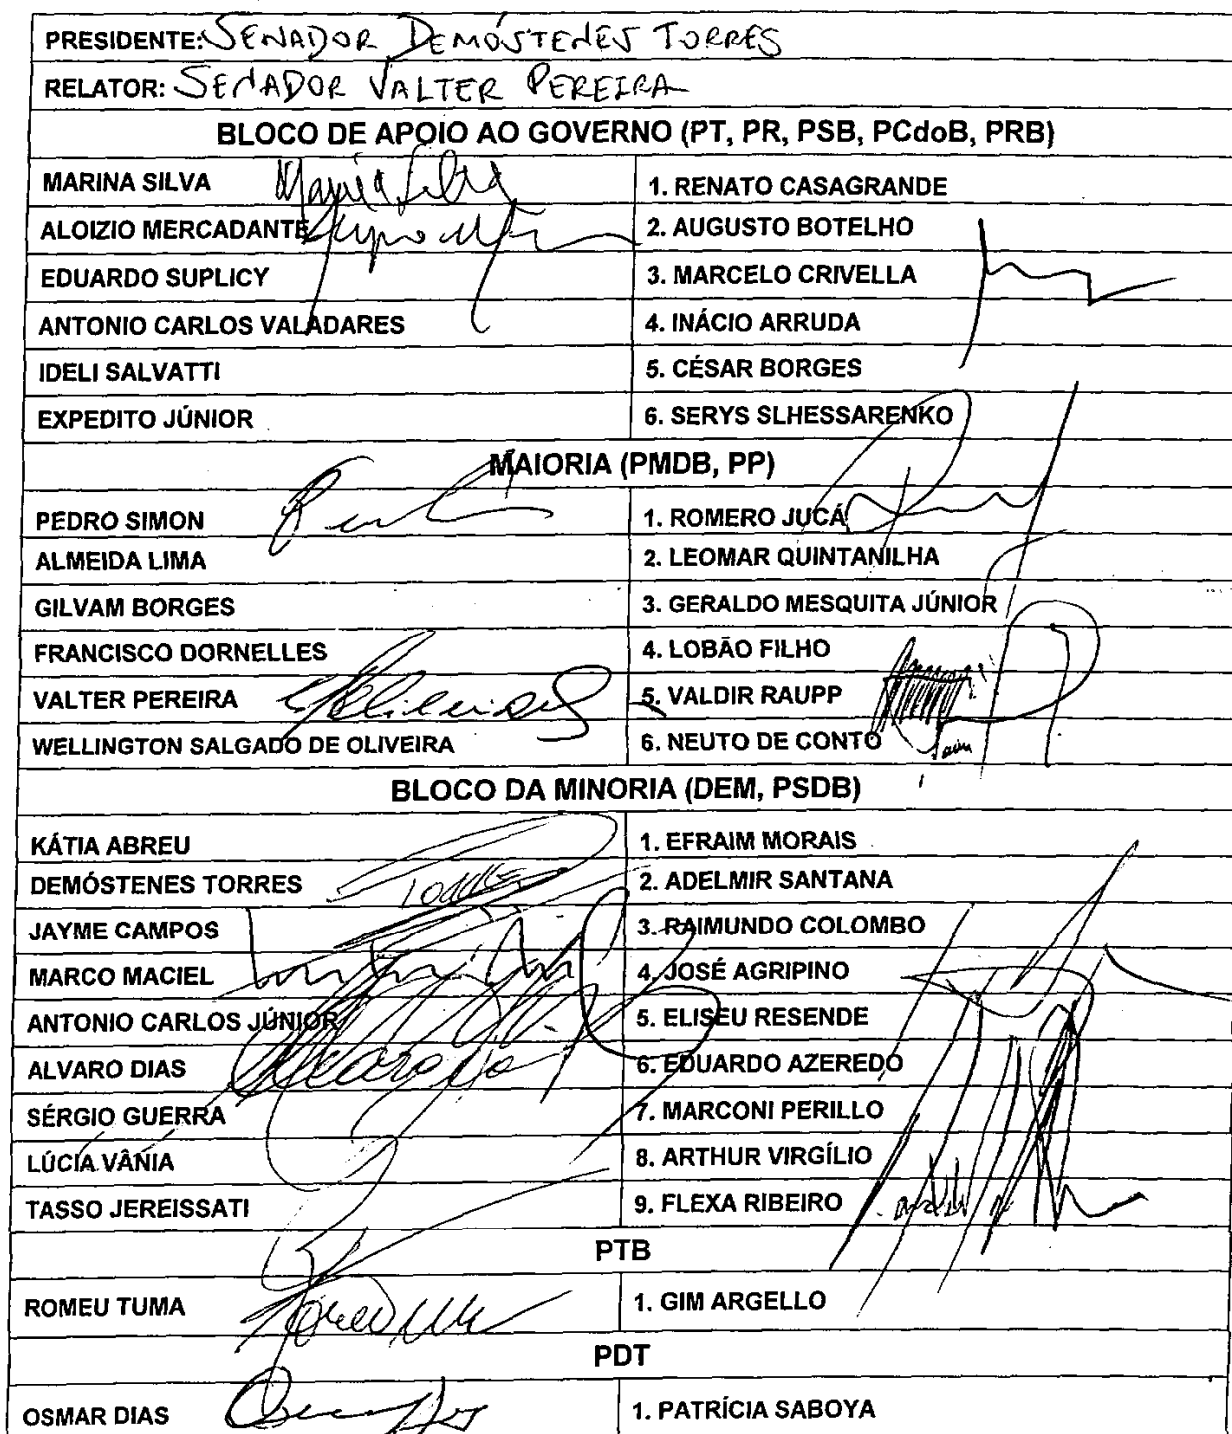 PRESIDENTE: SENADOR DEMÓSTENES TORRES
RELATOR: SENADOR VALTER PEREIRA
BLOCO DE APOIO AO GOVERNO (PT, PR, PSB, PCdoB, PRB)
MARINA SILVA Marina Silva 1. RENATO CASAGRANDE
ALOIZIO MERCADANTE 2. AUGUSTO BOTELHO
EDUARDO SUPLICY 3. MARCELO CRIVELLA
ANTONIO CARLOS VALADARES 4. INÁCIO ARRUDA
IDELI SALVATTI 5. CÉSAR BORGES
EXPEDITO JÚNIOR 6. SERYS SLHESSARENKO
MAIORIA (PMDB, PP)
PEDRO SIMON 1. ROMERO JUCÁ
ALMEIDA LIMA 2. LEOMAR QUINTANILHA
GILVAM BORGES 3. GERALDO MESQUITA JÚNIOR
FRANCISCO DORNELLES 4. LOBÃO FILHO
VALTER PEREIRA 5. VALDIR RAUPP
WELLINGTON SALGADO DE OLIVEIRA 6. NEUTO DE CONTO
BLOCO DA MINORIA (DEM, PSDB)
KÁTIA ABREU 1. EFRAIM MORAIS
DEMÓSTENES TORRES 2. ADELMIR SANTANA
JAYME CAMPOS 3. RAIMUNDO COLOMBO
MARCO MACIEL 4. JOSÉ AGRIPINO
ANTONIO CARLOS JÚNIOR 5. ELISEU RESENDE
ALVARO DIAS 6. EDUARDO AZEREDO
SÉRGIO GUERRA 7. MARCONI PERILLO
LÚCIA VÂNIA 8. ARTHUR VIRGÍLIO
TASSO JEREISSATI 9. FLEXA RIBEIRO
PTB
ROMEU TUMA 1. GIM ARGELLO
PDT
OSMAR DIAS 1. PATRÍCIA SABOYA